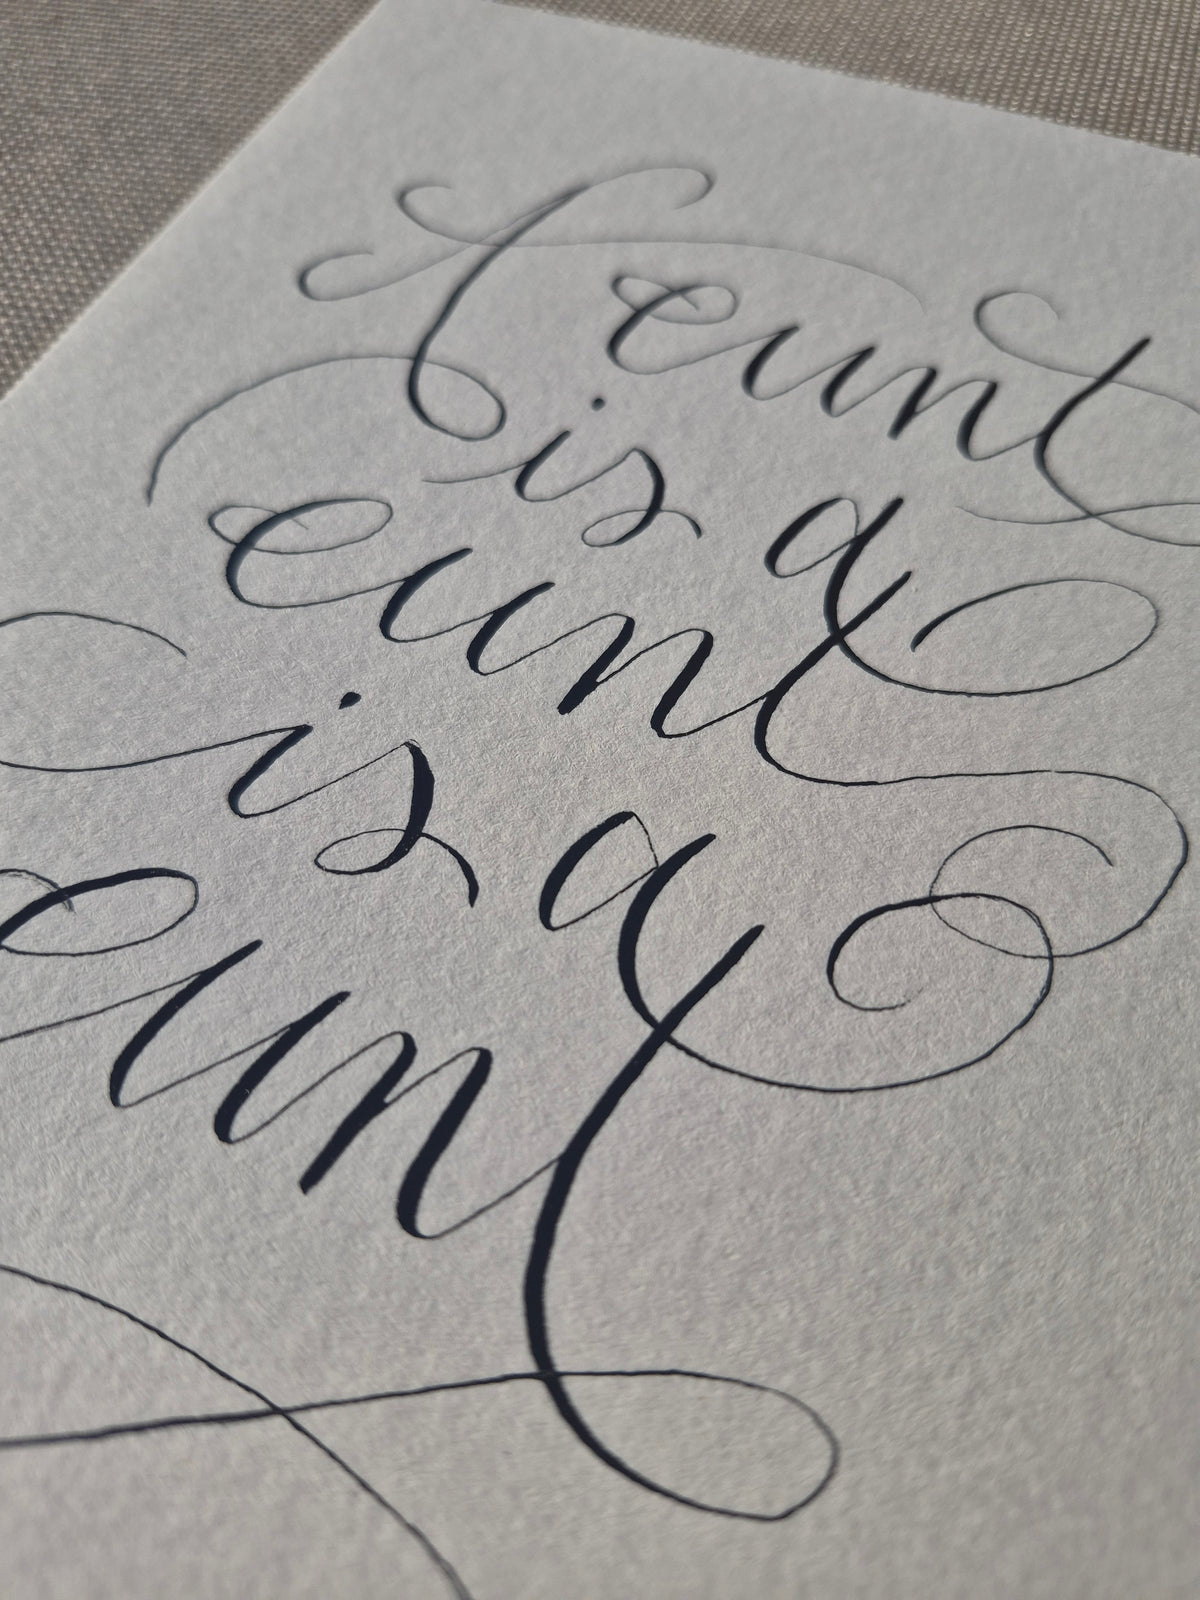 cunt
is a
cunt
is a
cunt